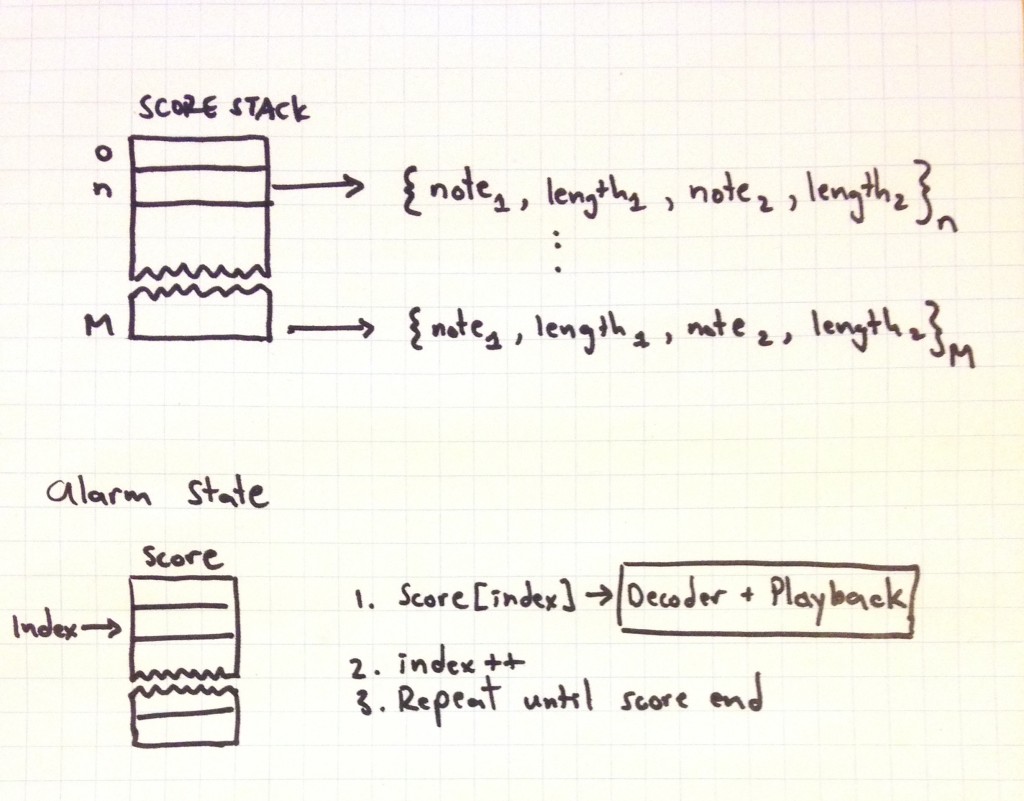 SCORE STACK
0
n → { note1, length1, note2, length2 }n
:
M → { note1, length1, note2, length2 }M
Alarm state
Score
Index →
1. Score[index] → Decoder + Playback
2. index ++
3. Repeat until score end